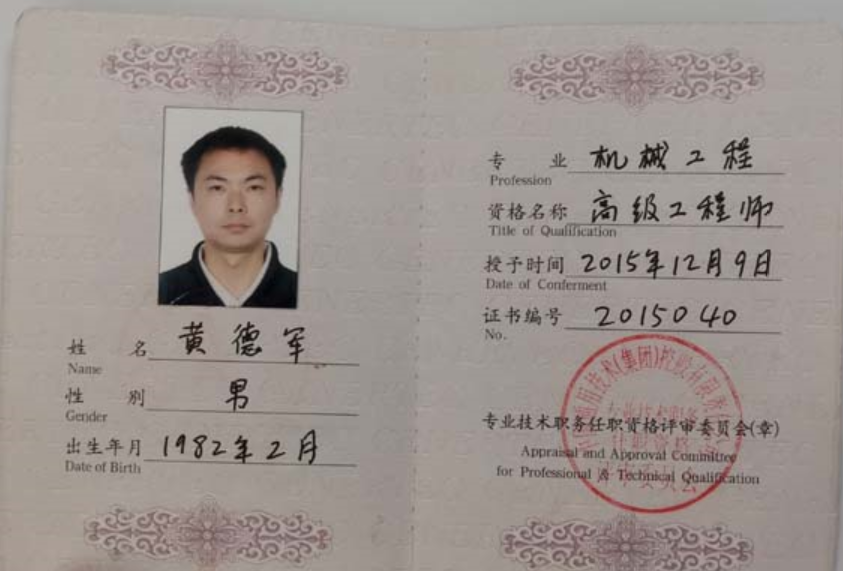 姓 名 黄德军
Name
性 别 男
Gender
出生年月 1982年2月
Date of Birth
专 业 机械工程
Profession
资格名称 高级工程师
Title of Qualification
授予时间 2015年12月9日
Date of Conferment
证书编号 2015040
No.
通用技术(集团)控股有限责任
专业技术职务
任职资格
评审委员会
专业技术职务任职资格评审委员会(章)
Appraisal and Approval Committee
for Professional & Technical Qualification